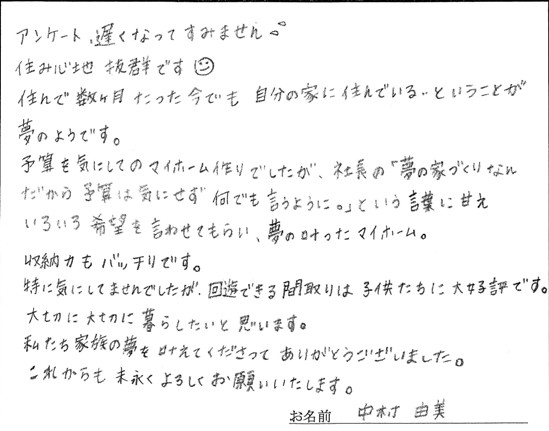 アンケート、遅くなってすみません
住み心地 抜群です
住んで数ヶ月たった今でも 自分の家に住んでいる‥ということが
夢のようです。
予算を気にしてのマイホーム作りでしたが、社長の「夢の家づくりなん
だから予算は気にせず何でも言うように。」という言葉に甘え
いろいろ希望を言わせてもらい、夢の叶ったマイホーム。
収納力もバッチリです。
特に気にしてませんでしたが、回遊できる間取りは子供たちに大好評です。
大切に大切に暮らしたいと思います。
私たち家族の夢を叶えてくださってありがとうございました。
これからも末永くよろしくお願いいたします。
お名前 中村 由美